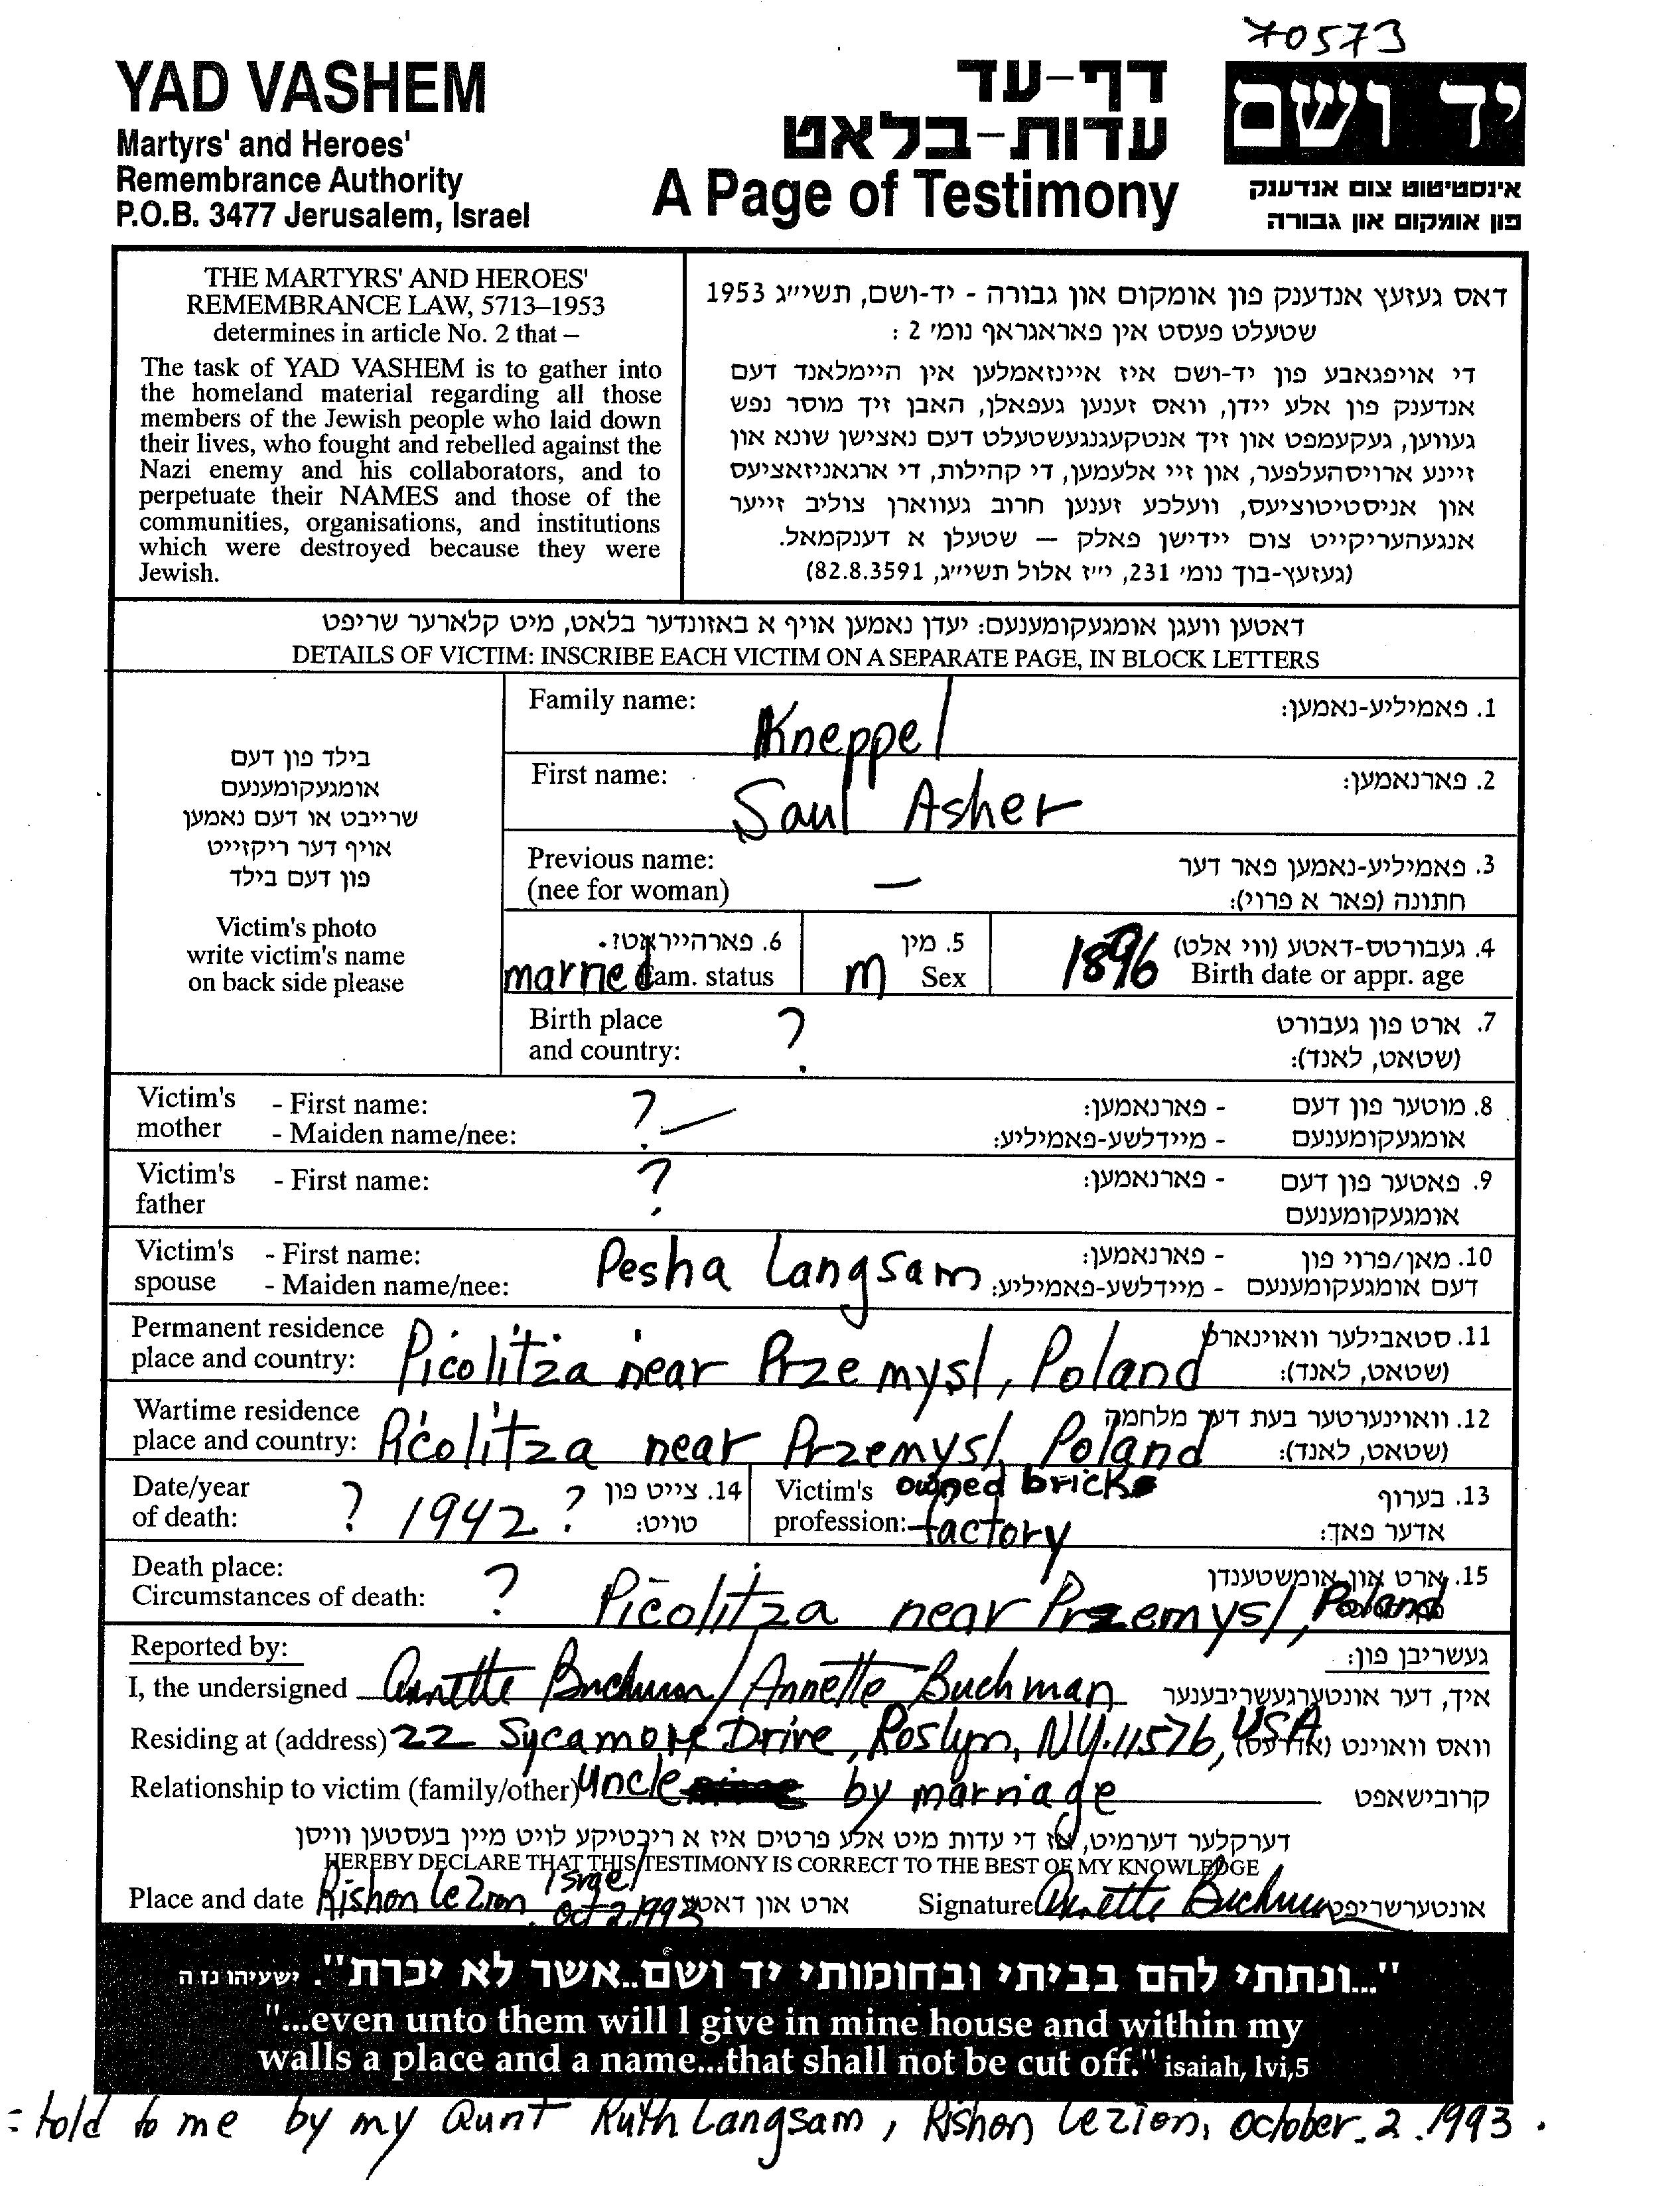 70573
YAD VASHEM
Martyrs' and Heroes'
Remembrance Authority
P.O.B. 3477 Jerusalem, Israel
דף-עד
עדות-בלאט
A Page of Testimony
יד ושם
אינסטיטוט צום אנדענק
פון אומקום און גבורה
THE MARTYRS' AND HEROES'
REMEMBRANCE LAW, 5713–1953
determines in article No. 2 that –
The task of YAD VASHEM is to gather into
the homeland material regarding all those
members of the Jewish people who laid down
their lives, who fought and rebelled against the
Nazi enemy and his collaborators, and to
perpetuate their NAMES and those of the
communities, organisations, and institutions
which were destroyed because they were
Jewish.
דאס געזעץ אנדענק פון אומקום און גבורה - יד-ושם, תשי״ג 1953
שטעלט פעסט אין פאראגראף נומ׳ 2 :
די אויפגאבע פון יד-ושם איז איינזאמלען אין היימלאנד דעם
אנדענק פון אלע יידן, וואס זענען געפאלן, האבן זיך מוסר נפש
געווען, געקעמפט און זיך אנטקעגנגעשטעלט דעם נאצישן שונא און
זיינע ארויסהעלפער, און זיי אלעמען, די קהילות, די ארגאניזאציעס
און אניסטיטוציעס, וועלכע זענען חרוב געווארן צוליב זייער
אנגעהעריקייט צום יידישן פאלק – שטעלן א דענקמאל.
(געזעץ-בוך נומ׳ 231, י״ז אלול תשי״ג, 82.8.3591)
דאטען וועגן אומגעקומענעם: יעדן נאמען אויף א באזונדער בלאט, מיט קלארער שריפט
DETAILS OF VICTIM: INSCRIBE EACH VICTIM ON A SEPARATE PAGE, IN BLOCK LETTERS
בילד פון דעם
אומגעקומענעם
שרייבט או דעם נאמען
אויף דער ריקזייט
פון דעם בילד
Victim's photo
write victim's name
on back side please
Family name: Kneppel 1. פאמיליע-נאמען:
First name: Saul Asher 2. פארנאמען:
Previous name:
(nee for woman) — 3. פאמיליע-נאמען פאר דער
חתונה (פאר א פרוי):
6. פארהייראטז. 5. מין 4. געבורטס-דאטע (ווי אלט)
married Fam. status m Sex 1896 Birth date or appr. age
Birth place
and country: ? 7. ארט פון געבורט
(שטאט, לאנד):
Victim's mother - First name: ? - פארנאמען: 8. מוטער פון דעם
- Maiden name/nee: — - מיידלשע-פאמיליע: אומגעקומענעם
Victim's father - First name: ? - פארנאמען: 9. פאטער פון דעם
אומגעקומענעם
Victim's spouse - First name: Pesha Langsam - פארנאמען: 10. מאן/פרוי פון
- Maiden name/nee: - מיידלשע-פאמיליע: דעם אומגעקומענעם
Permanent residence
place and country: Picolitza near Przemysl, Poland 11. סטאבילער וואוינארט
(שטאט, לאנד):
Wartime residence
place and country: Picolitza near Przemysl, Poland 12. וואוינערטער בעת דער מלחמה
(שטאט, לאנד):
Date/year
of death: ? 1942 ? 14. צייט פון
טויט:
Victim's
profession: owned bricks
factory 13. בערוף
אדער פאך:
Death place:
Circumstances of death: ? Picolitza near Przemysl, Poland 15. ארט און אומשטענדן
Reported by: געשריבן פון:
I, the undersigned Annette Buchman/Annette Buchman איך, דער אונטערגעשריבענער
Residing at (address) 22 Sycamore Drive, Roslyn, NY. 11576, USA וואס וואוינט (אדרעס)
Relationship to victim (family/other) Uncle by marriage קרובישאפט
דערקלער דערמיט, אז די עדות מיט אלע פרטים איז א ריכטיקע לויט מיין בעסטען וויסן
HEREBY DECLARE THAT THIS TESTIMONY IS CORRECT TO THE BEST OF MY KNOWLEDGE
Place and date Rishon LeZion Israel Oct 2, 1993 ארט און דאטע Signature Annette Buchman אונטערשריפט
"...ונתתי להם בביתי ובחומותי יד ושם..אשר לא יכרת". ישעיהו נז ה
"...even unto them will I give in mine house and within my
walls a place and a name...that shall not be cut off." isaiah, lvi,5
= told to me by my Aunt Ruth Langsam, Rishon Lezion, October.2.1993.